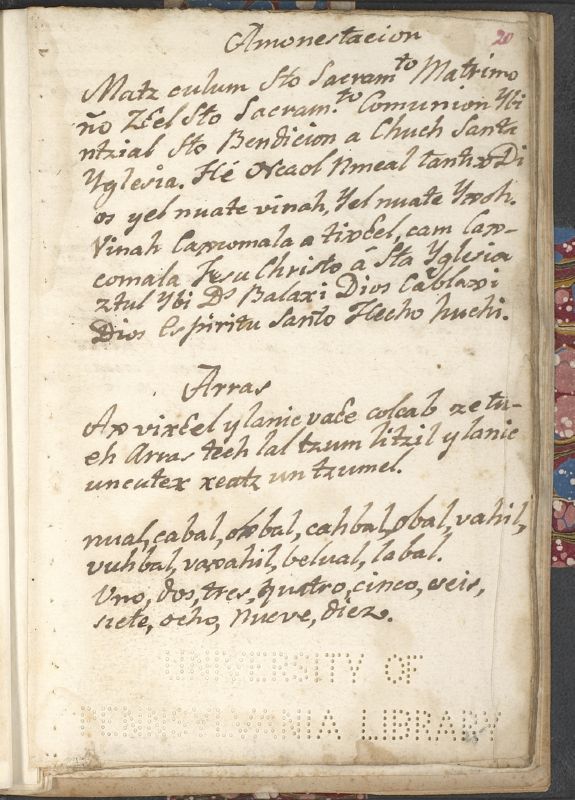 Amonestacion
20
Matz culum Sto Sacram.to Matrimo
ño Zẽel Sto Sacram.to Comunion Ybi
ntzial Sto Bendicion a Chuch Santa
Yglesia. Hé Ncaol Nmeal tantxo Di
os yel nuate vinah, Yel nuate Yxoh.
Vinah Caxcomala a tixcel, cam Cax-
comala Jesu Christo á Sta Yglesia
ztul Ybi Ds Balaxi Dios Cablaxi
Dios Espiritu Santo Hecho huchi.
Arras
Ax vixcel ylanic vaẽe colcab ze tu-
eh Arras tech lal tzum litzil ylanic
uncutex xeatz un tzumel.
nual, cabal, oxbal, cahbal, obal, vahil,
vuhbal, vaxahil, belual, labal.
Uno, dos, tres, quatro, cinco, seis,
siete, ocho, Nueve, diez.
UNIVERSITY OF
PENNSYLVANIA LIBRARY